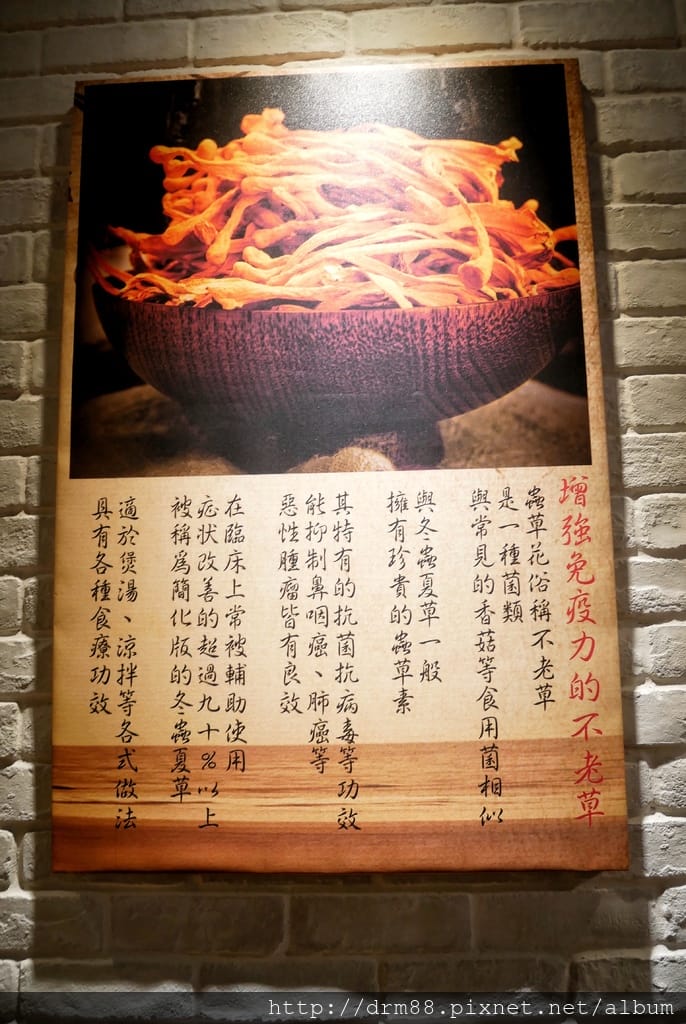 增強免疫力的不老草
蟲草花俗稱不老草
是一種菌類
與常見的香菇等食用菌相似
與冬蟲夏草一般
擁有珍貴的蟲草素
其特有的抗菌抗病毒等功效
能抑制鼻咽癌、肺癌等
惡性腫瘤皆有良效
在臨床上常被輔助使用
症狀改善的超過九十%以上
被稱為簡化版的冬蟲夏草
適於煲湯、涼拌等各式做法
具有各種食療功效
http://drm88.pixnet.net/album